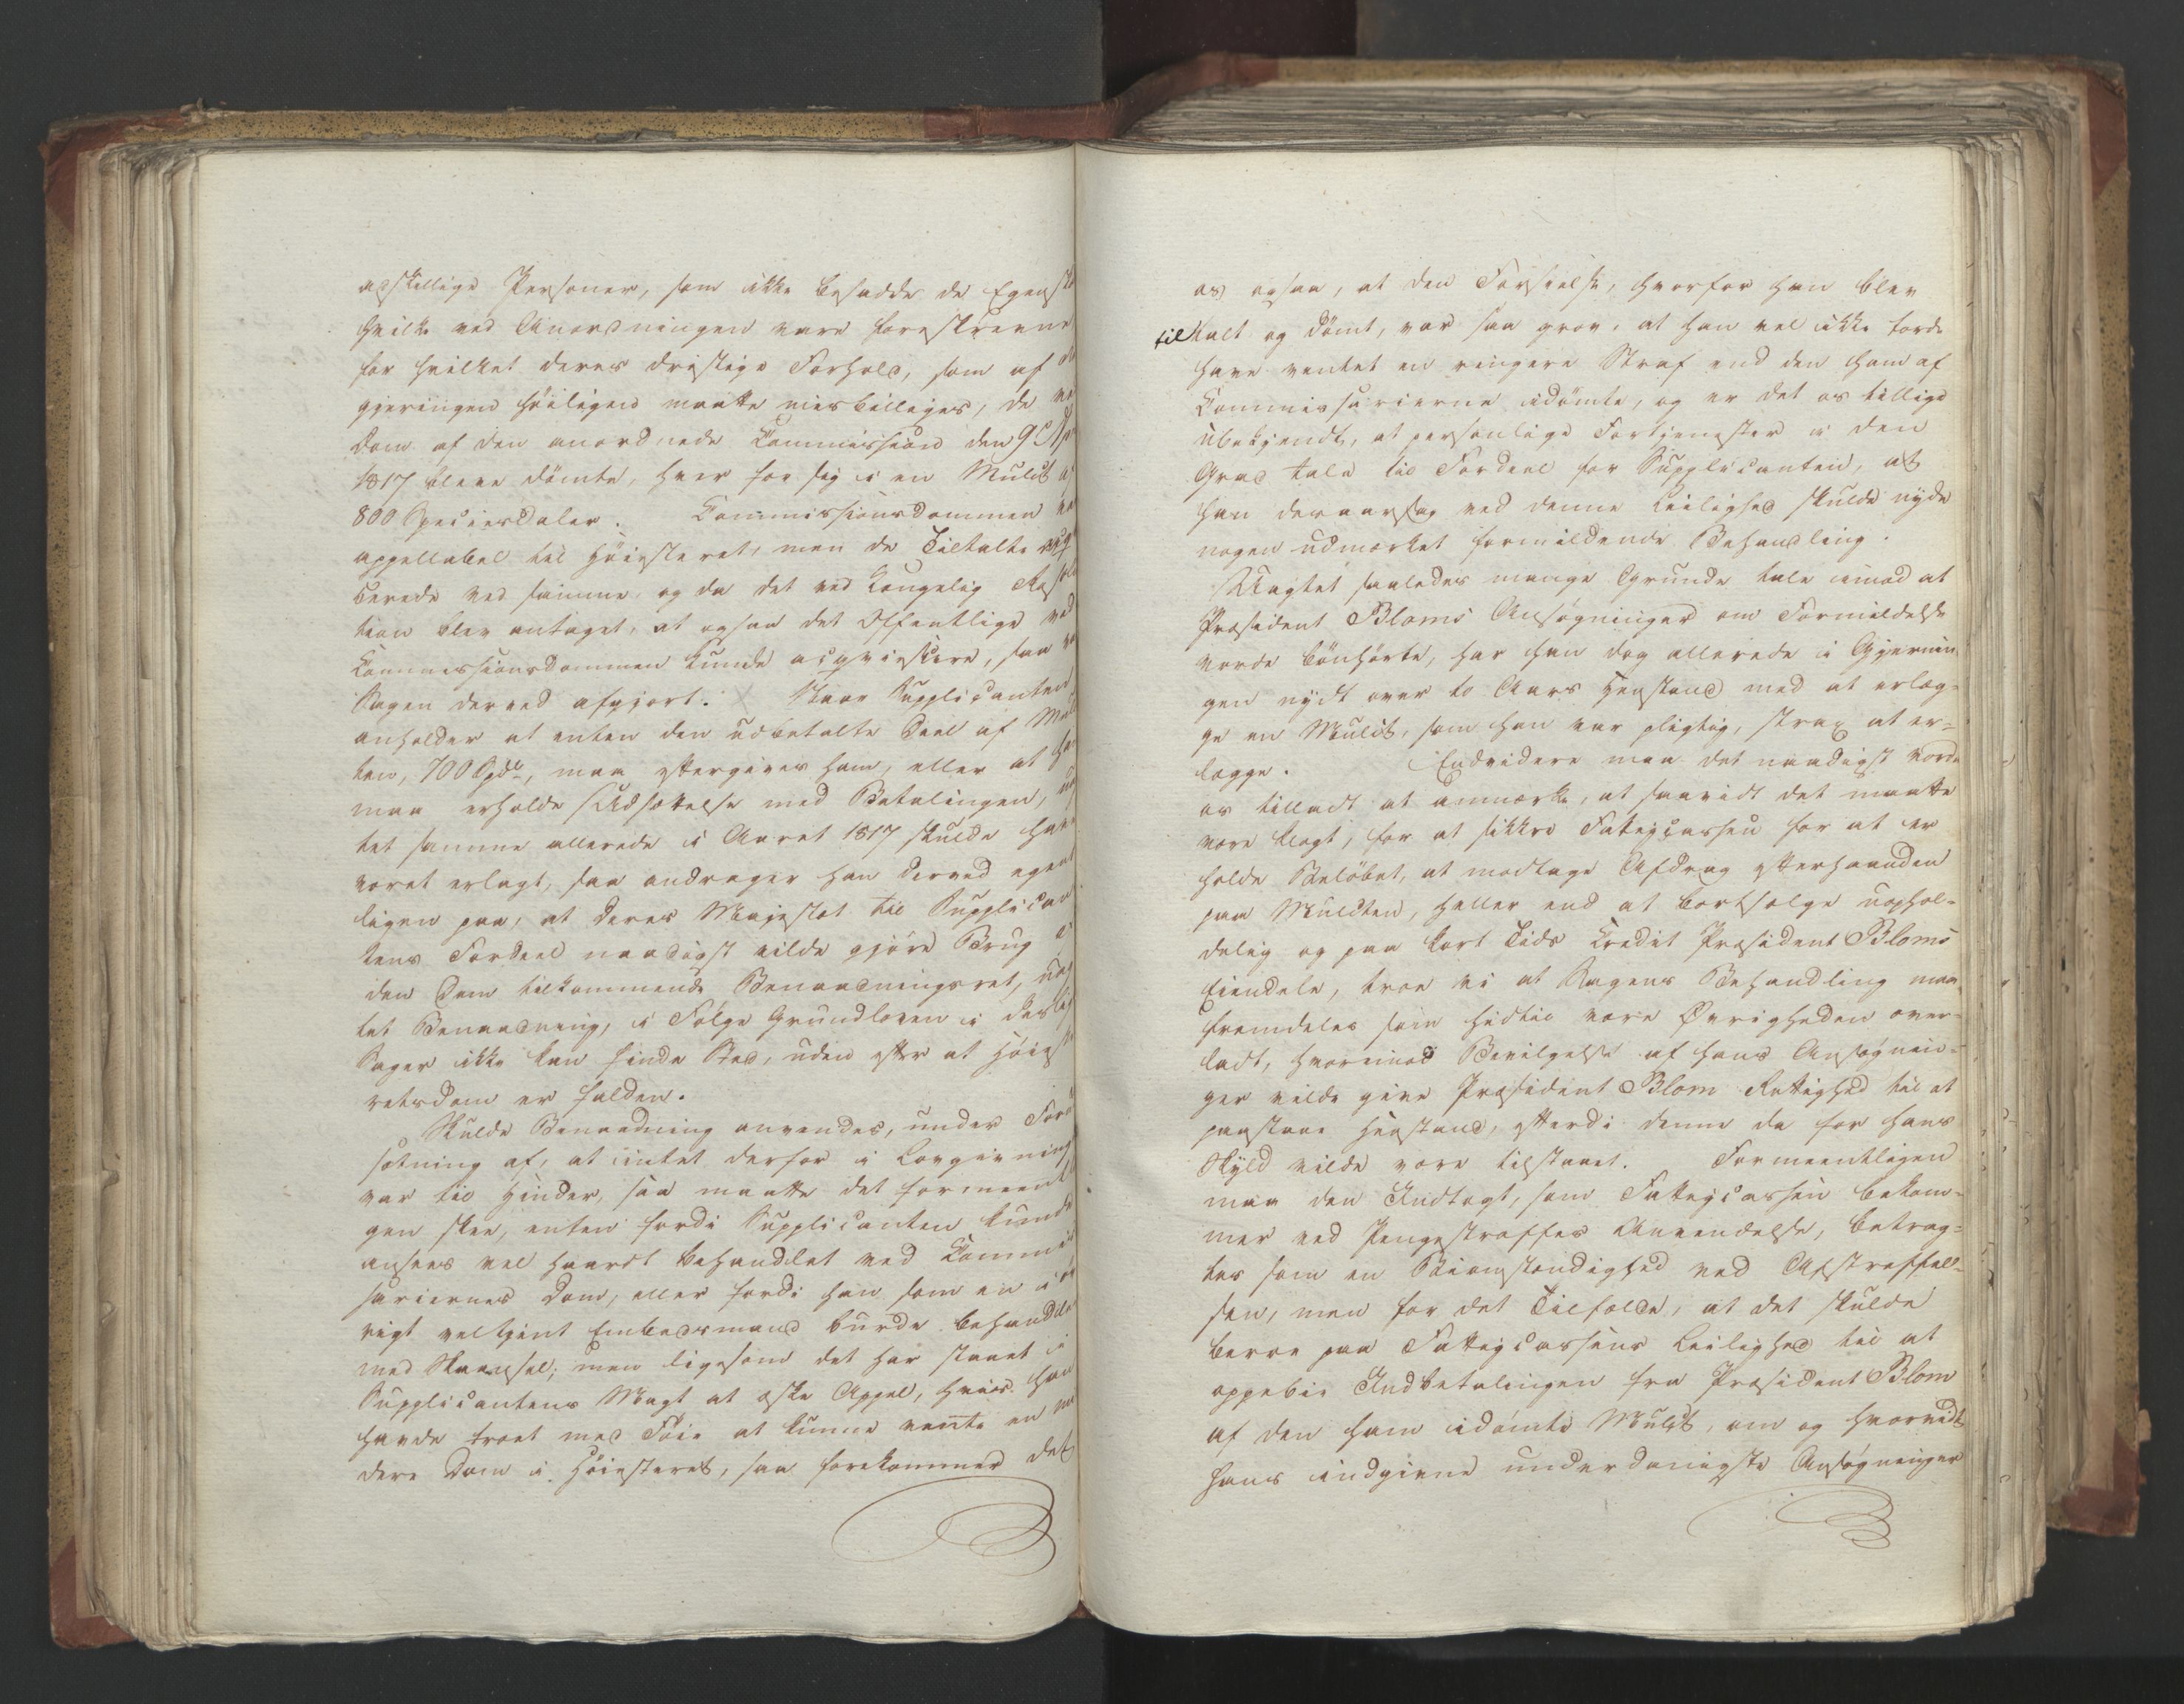 adskillige Personer, som ikke besadde de Egensk
hvilke ved Anordningen vare foreskrevne
for hvilket deres dristige Forhold, som af
gjeringen höiligen maatte misbilliges, de ve
Dom af den anordnede Commission den 9 Ap
1817 bleve dömte, hver for sig i en Mulct af
800 Speciesdaler. Commissionsdommen va
appellabel til Höiesteret, men de Tiltalte
berode ved samme, og da det ved Kongelig Resolu
tion blev antaget, at ogsaa det Offentlige ved
Commissionsdommen kunde acqviescere, saa va
Sagen derved afgjort. Naar Supplicanten
anholder at enten den udbetalte Deel af Mulc
ten, 700 Spd, maa eftergives ham, eller at ha
maa erholde Udsættelse med Betalingen, uag
tet samme allerede i Aaret 1817 skulde have
været erlagt, saa andrager han derved egent
ligen paa, at Deres Majestæt til Supplican
tens Fordeel naadigst vilde gjöre Brug i
den Dem tilkommende Benaadningsret, uag
tet Benaadning, i Fölge Grundloven i deslig
Sager ikke kan finde Sted, uden efter at Höieste
retsdom er falden.
Skulde Benaadning anvendes, under Foru
sætning af, at intet derfor i Lovgivning
var til Hinder, saa maatte det formeentli
gen skee, enten fordi Supplicanten kunde
ansees vel haardt behandlet ved Commis
sariernes Dom, eller fordi han som en i öv
rigt veltjent Embedsmand burde behandles
med Skaansel; men ligesom det har staaet i
Supplicantens Magt at æske Appel, hvis han
havde troet med Föie at kunne vente en mil
dere Dom i Höiesteret, saa forekommer det
os ogsaa, at den Forseelse, hvorfor han blev
tiltalt og dömt, var saa grov, at han vel ikke torde
have ventet en ringere Straf end den ham af
Commissarierne idömte, og er det os tillige
ubekjendt, at personlige Fortjenester i den
Grad tale til Fordeel for Supplicanten, at
han desaarsag ved denne Leilighed skulde nyde
nogen udmærket formildende Behandling.
Uagtet saaledes mange Grunde tale imod at
Præsident Bloms Ansögninger om Formildelse
vorde bönhörte, har han dog allerede i Gjernin
gen nydt over to Aars Henstand med at erlæg-
ge en Mulct, som han var pligtig, strax at er-
lægge. Endvidere maa det naadigst vorde
os tilladt at anmærke, at saavidt det maatte
være klogt, for at sikkre Fattigcassen for at er
holde Belöbet, at modtage Afdrag efterhaanden
paa Mulcten, heller end at bortsælge uophol-
delig og paa kort Tids Credit Præsident Bloms
Eiendele, troe vi at Sagens Behandling maa
fremdeles som hidtil være Øvrigheden over-
ladt, hvorimod Bevilgelse af hans Ansögnin-
ger vilde give Præsident Blom Rettighed til at
paastaae Henstand, efterdi denne da for hans
Skyld vilde være tilstaaet. Formeentligen
maa den Indtægt, som Fattigcassen bekom-
mer ved Pengestraffes Anvendelse, betrag-
tes som en Biomstændighed ved Afstraffel-
sen, men for det Tilfælde, at det skulde
beroe paa Fattigcassens Leilighed til at
oppebie Indbetalingen fra Præsident Blom
af den ham idömte Mulct, om og hvorvidt
hans indgivne underdanigste Ansögninger